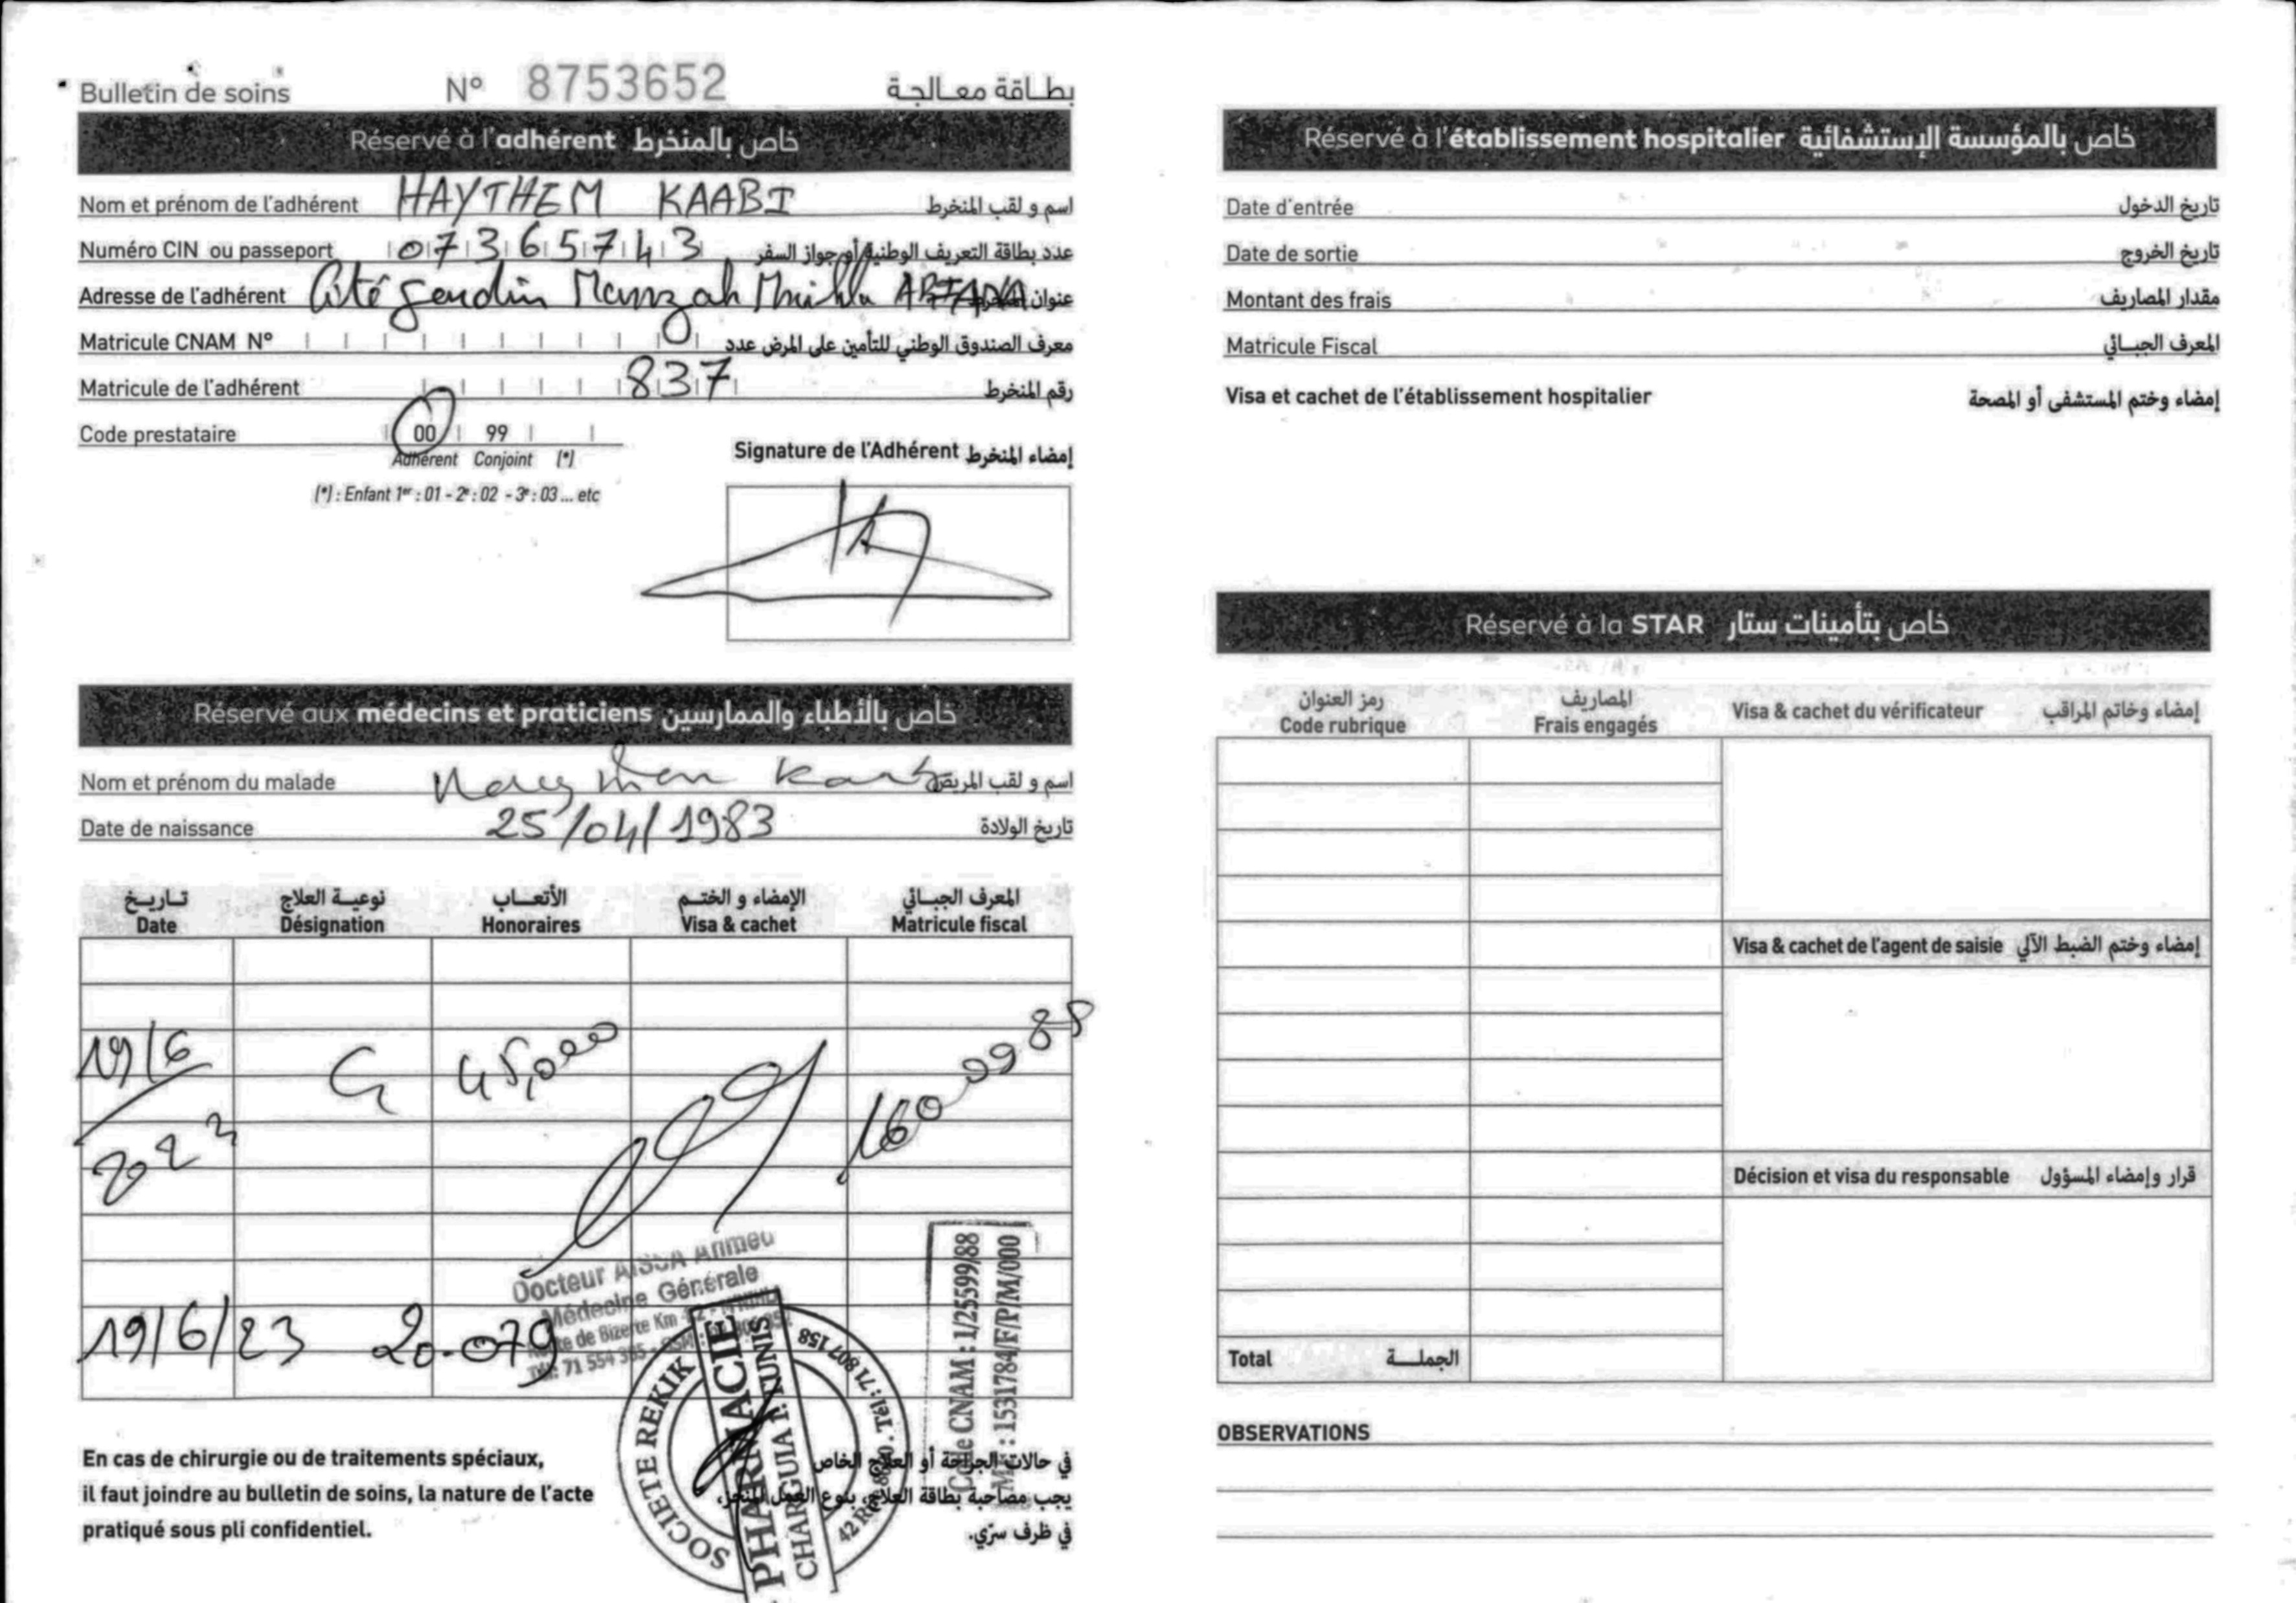 Bulletin de soins N° 8753652 بطاقة معالجة
Réservé à l'adhérent خاص بالمنخرط
Nom et prénom de l'adhérent HAYTHEM KAABI اسم و لقب المنخرط
Numéro CIN ou passeport 07365743 عدد بطاقة التعريف الوطنية أو جواز السفر
Adresse de l'adhérent Cité Manzah ARIANA عنوان المنخرط
Matricule CNAM N° 0 معرف الصندوق الوطني للتأمين على المرض عدد
Matricule de l'adhérent 837 رقم المنخرط
Code prestataire 00 99
Adhérent Conjoint (*)
(*) : Enfant 1er : 01 - 2e : 02 - 3e : 03 ... etc
Signature de l'Adhérent إمضاء المنخرط
Réservé aux médecins et praticiens خاص بالأطباء والممارسين
Nom et prénom du malade اسم و لقب المريض
Date de naissance 25/04/1983 تاريخ الولادة
تاريخ نوعية العلاج الأتعاب الإمضاء و الختم المعرف الجبائي
Date Désignation Honoraires Visa & cachet Matricule fiscal
19/6 C 45,000
Docteur AISSA Ahmed
Médecine Générale
Route de Bizerte Km
19/6/23 20.079
SOCIETE REKIK
PHARMACIE
CHARGUIA I. TUNIS
Tél : 71 807 158
Code CNAM : 1/25599/88
MF : 1531784/F/P/M/000
En cas de chirurgie ou de traitements spéciaux,
il faut joindre au bulletin de soins, la nature de l'acte
pratiqué sous pli confidentiel.
في حالات الجراحة أو العلاج الخاص
يجب مصاحبة بطاقة العلاج، بنوع العمل المنجز،
في ظرف سرّي.
Réservé à l'établissement hospitalier خاص بالمؤسسة الإستشفائية
Date d'entrée تاريخ الدخول
Date de sortie تاريخ الخروج
Montant des frais مقدار المصاريف
Matricule Fiscal المعرف الجبائي
Visa et cachet de l'établissement hospitalier إمضاء وختم المستشفى أو المصحة
Réservé à la STAR خاص بتأمينات ستار
رمز العنوان المصاريف
Code rubrique Frais engagés Visa & cachet du vérificateur إمضاء وخاتم المراقب
Visa & cachet de l'agent de saisie إمضاء وختم الضبط الآلي
Décision et visa du responsable قرار وإمضاء المسؤول
Total الجملة
OBSERVATIONS